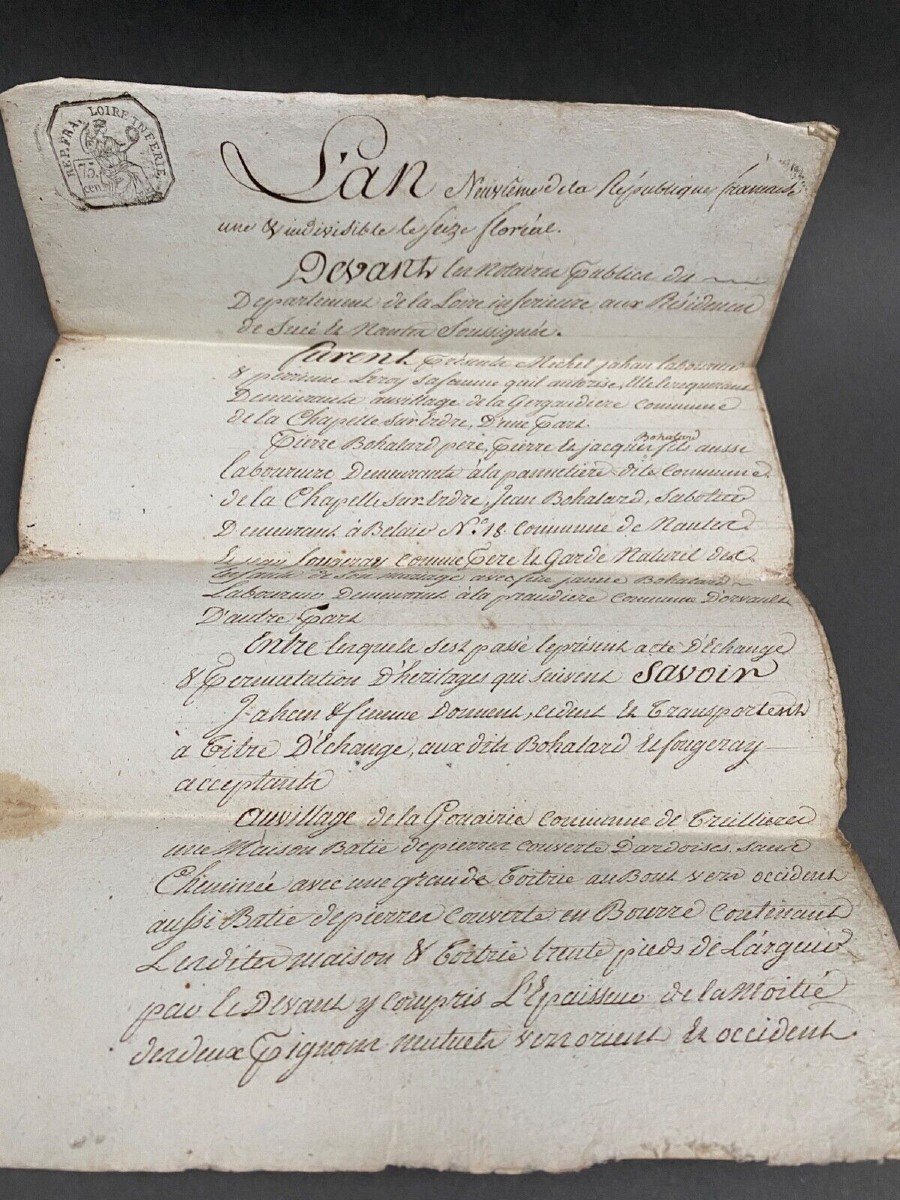 REP. FRA. LOIRE INFERIE.
75
cen
L'an Neuvième de la République francaise
une & indivisible le seize floréal.
Devant les Notaires Publics du
Departement de la Loire inferieure aux Résidences
de Sucé & Nantes Soussignés.
furent Présents Michel Jahan laboureur
& perrinne Leroy sa femme qu'il autorise, elle le requerant
Demeurants au village de la Gergaudiere commune
de la Chapelle Sur Erdre, D'une Part
Bohatard
Pierre Bohatard père, Pierre & jacques fils aussi
laboureurs Demeurants à la pannetière dite Commune
de la Chapelle Sur Erdre, Jean Bohatard, Sabotier
Demeurant à Belair N.° 18 commune de Nantes
& jean fougeray comme Père & Garde Naturel des
Enfants de son mariage avec feue janne Bohatard
Laboureur Demeurant à la praudiere commune D'orvault
D'autre Part
Entre lesquels s'est passé le présent acte D'Echange
& Permutation D'héritages qui suivent Savoir
Jahan & femme Donnent, cédent & Transportent
à Titre D'Echange, aux dits Bohatard & fougeray
acceptants
au village de la Gouairie commune de Treillieres
une Maison Batie de pierres couverte D'ardoises, sans
Cheminée avec une grande Toitrie au Bout vers occident
aussi Batie de pierres couverte en Bourre contenant
Lesdites maison & Toitrie trente pieds de Largeur
par le Devant y compris L'Epaisseur de la Moitié
des deux Pignons mutuels vers orient & occident